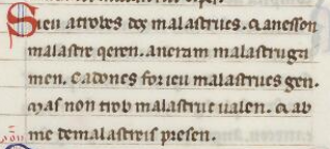 Sieu atrobes dos malastrucs. & anesson
malastre qeren. aueram malastrugα
men. Cadones for ieu malastrucs gen.
Mas non trob malastruc ualen. & ab
me demalastreis presen.